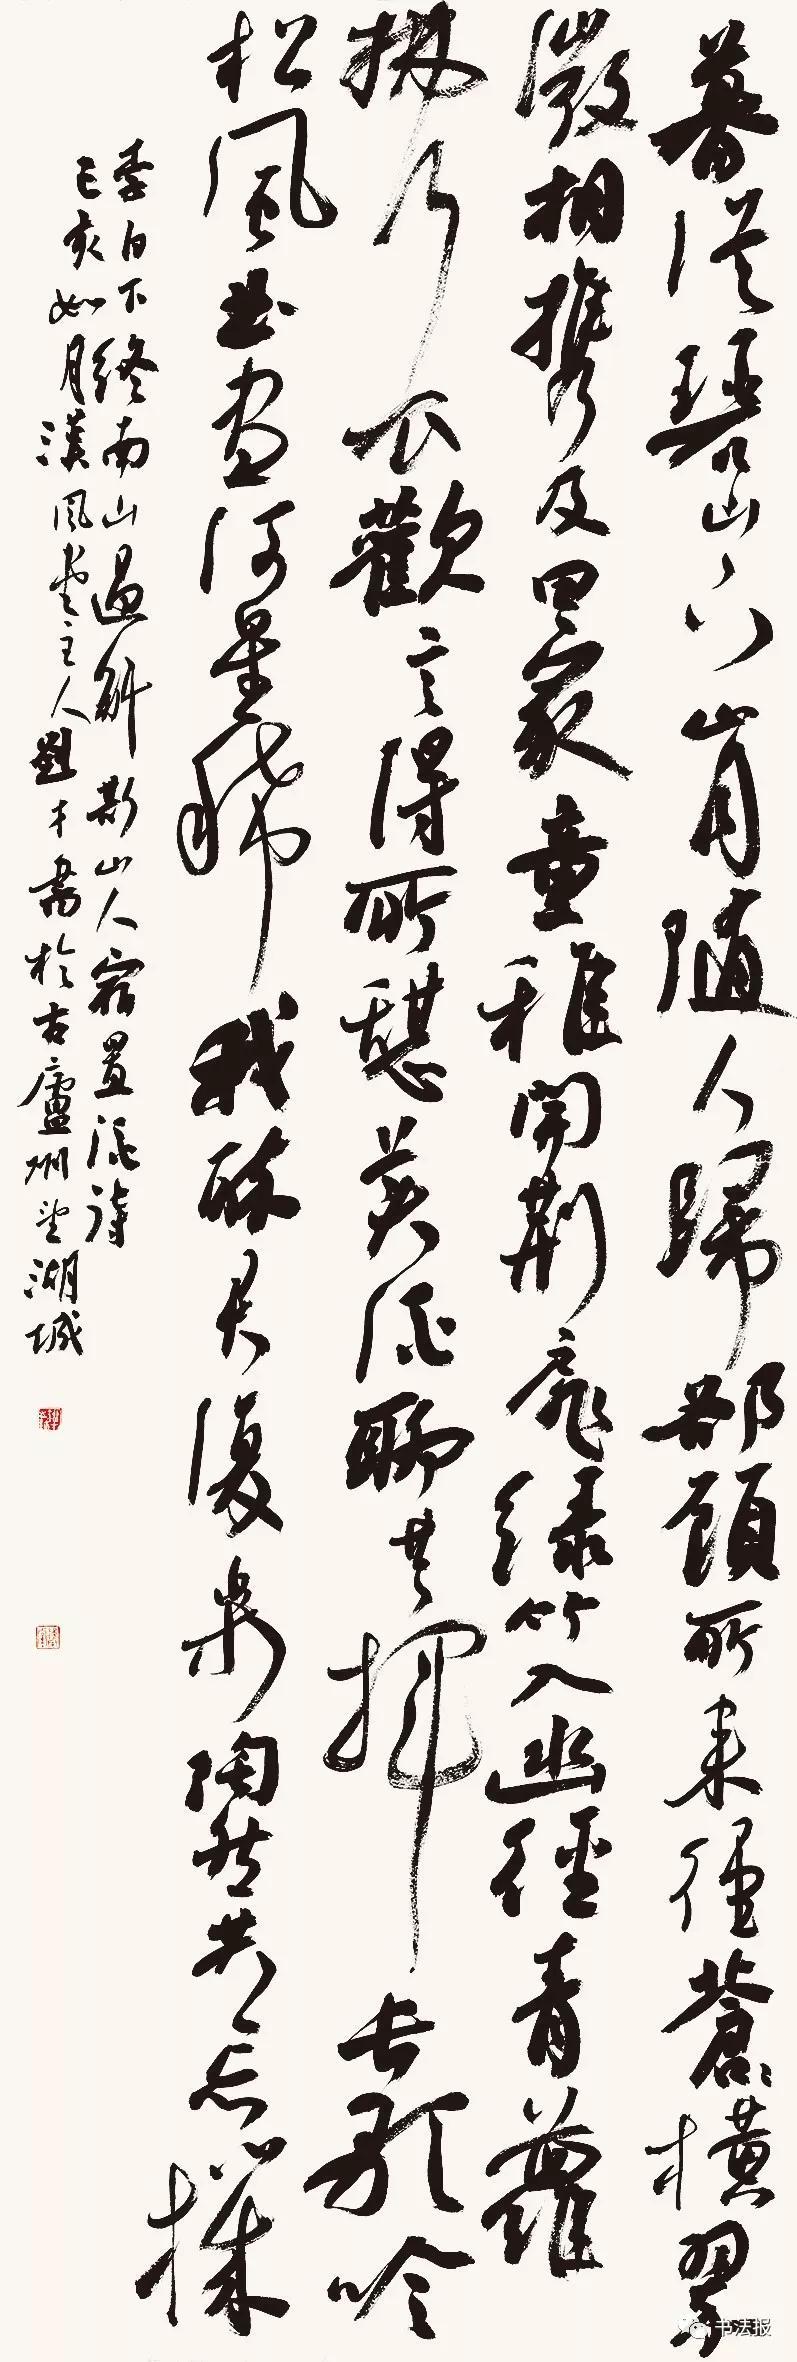 暮從碧山下山月隨人歸却顧所来徑蒼蒼橫翠
微相携及田家童稚開荆扉緑竹入幽徑青蘿
拂行衣歡言得所憩美酒聊共揮長歌吟
松風曲盡河星稀我醉君復樂陶然共忘機
李白下終南山過斛斯山人宿置酒詩
己亥如月漢風堂主人劉才書於古廬州望湖城
书法报